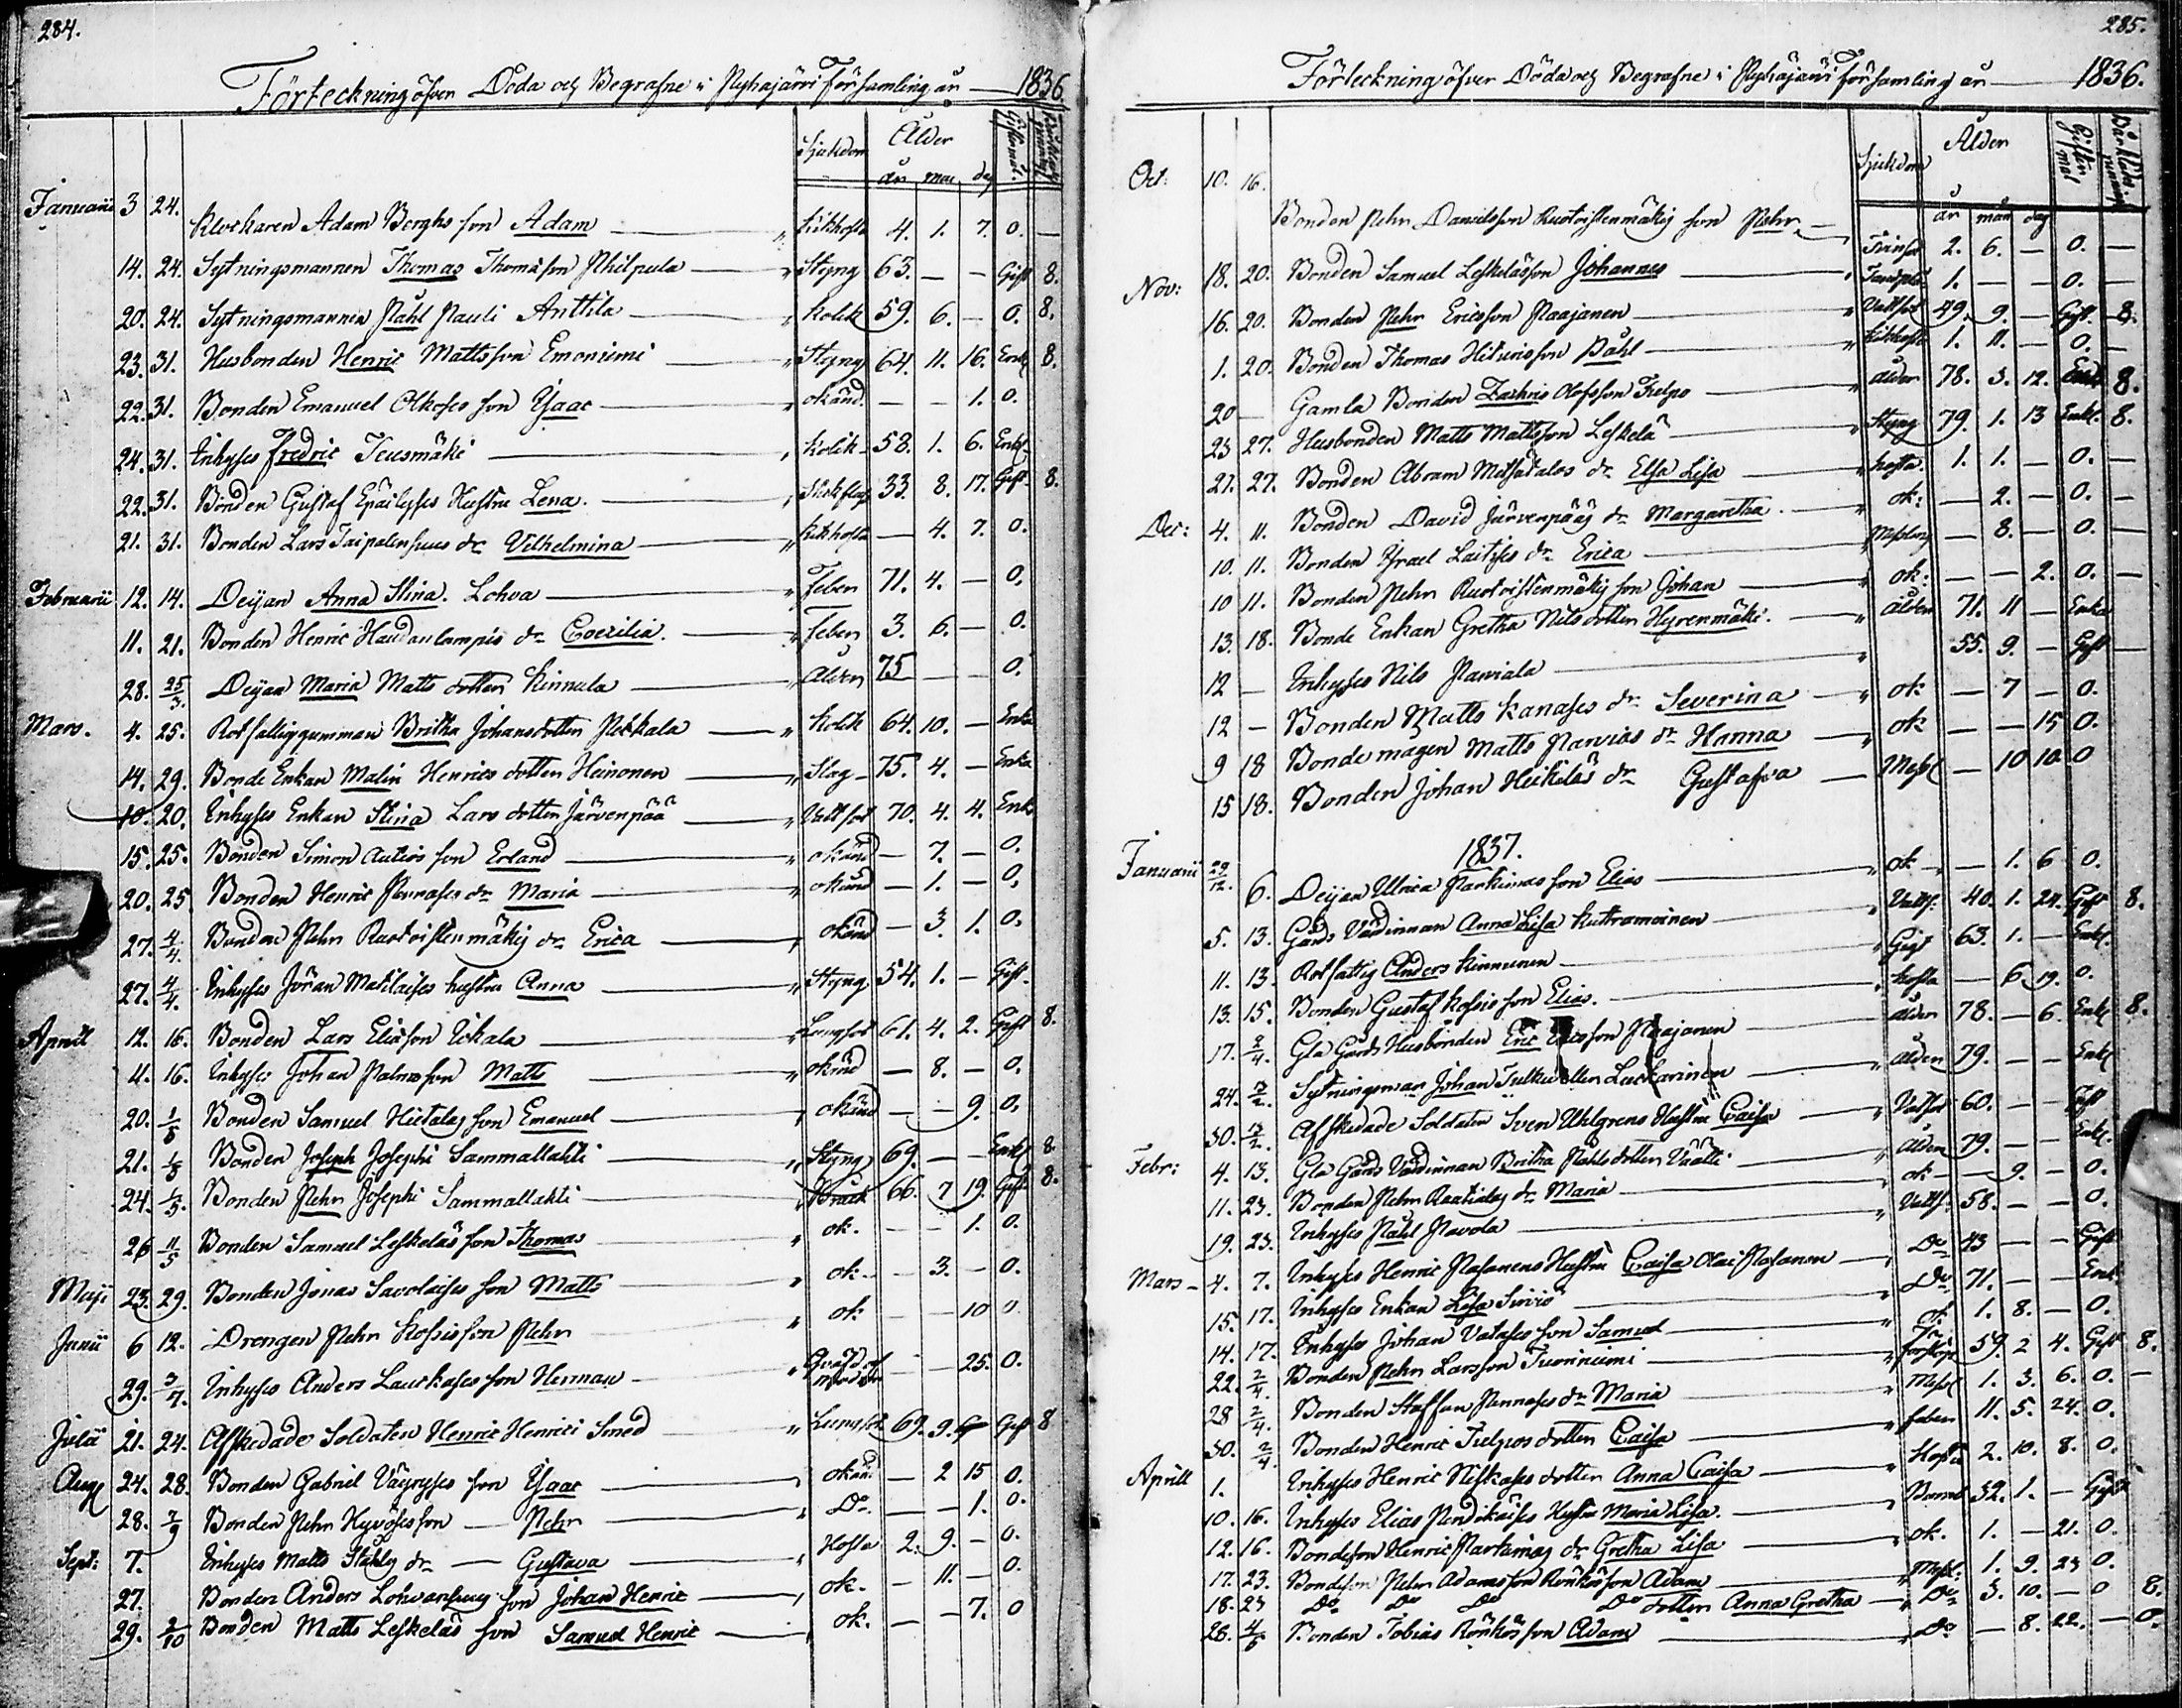 284.
Förteckning öfver Döda och Begrafne i Pyhajärvi Församling år 1836.
Sjukdom Ålder Giftermål
år mån dag
Januarii 3 24. Klockaren Adam Berghs son Adam " Kikhosta 4. 1. 7. 0. —
14. 24. Sytningsmannen Thomas Thomasson " Styng 63. — — Gift 8.
20. 24. Sytningsmannen Påhl Pauli Anttila " Kolik 59. 6. — 0. 8.
23. 31. Husbonden Henric Mattsson Emoniemi " Styng 64. 11. 16. Enkl 8.
22. 31. Bonden Emanuel Olkoses son Ysaac " okänd — — 1. 0.
24. 31. Inhyses Fredric Teusmäki " Kolik 58. 1. 6. Enkl.
22. 31. Bonden Gustaf Hustru Lena. " 33. 8. 17. Gift. 8.
21. 31. Bonden Lars Taipalensuus dr Vilhelmina " Kikhosta — 4. 7. 0.
Februarii 12. 14. Deijan Anna Stina. Lohva " Feber 71. 4. — 0.
11. 21. Bonden Henric Haudanlampis dr Coecilia. " Feber 3. 6. — 0.
28. 25/3. Deijan Maria Matts dotter Kinnula " Ålder 75 — — 0.
Mars. 4. 25. Rotfattiggumman Britha Johansdotter Pekkala " Kolik 64. 10. — Enka
14. 29. Bonde Enkan Malin Henrics dotter Heinonen " Slag 75. 4. — Enka
10. 20. Inhyses Enkan Stina Lars dotter Järvenpää " Vattsot 70. 4. 4. Enka
15. 25. Bonden Simon Autios son Erland " okänd — 7. — 0.
20. 25. Bonden Henric Pennases dr Maria " okänd — 1. — 0.
27. 4/4. Bonden Pehr Ruotoistenmäkis dr Erica " okänd — 3. 1. 0.
27. 4/4. Inhyses Jöran Matilaises hustru Anna " Styng 54. 1. — Gift.
Aprill 12. 16. Bonden Lars Eliasson Eskala " Lungsot 61. 4. 2. Gift 8.
4. 16. Inhyses Johan Palmsson Matts " okänd — 8. — 0.
20. 1/5 Bonden Samuel Hietalas son Emanuel " okänd — — 9. 0.
21. 1/5 Bonden Joseph Josephi Sammallahti " Styng 69. — — Enkl 8.
24. 1/5. Bonden Pehr Josephi Sammallahti " Bråck 66. 7 19. Gift 8.
26 11/5 Bonden Samuel Leskeläs son Thomas " ok. — — 1. 0.
Maji 23. 29. Bonden Jonas Savolaises son Matts " ok. — 3. — 0.
Junii 6 12. Drengen Pehr Kossis son Pehr " ok — — 10 0.
29. 3/7. Inhyses Anders Laukases son Herman " Qväfd af modren — — 25. 0.
Julii 21. 24. Afskedade Soldaten Henric Henrici Smed " Lungsot 69. 9. Gift 8
Aug 24. 28. Bonden Gabriel Väyryses son Ysaac okänd — 2 15 0.
28. 7/9 Bonden Pehr Hyvöses son — Pehr " Do. — — 1. 0.
Sept: 7. Inhyses Matts Ståhles dr — Gustava Hosta 2. 9. — 0.
27. Bonden Anders Lohvansuus son Johan Henric ok. — 11. — 0.
29. 2/10 Bonden Matts Leskeläs son Samuel Henric ok. — — 7. 0
285.
Förteckning öfver Döda och Begrafne i Pyhäjärvi Församling år 1836.
Sjukdom Ålder Gifter mål
år mån dag
Oct: 10. 16. Bonden Pehr Danielsson Ruotoistenmäkis son Pehr 2. 6. — 0. —
18. 20. Bonden Samuel Leskelässon Johannes " 1. — — 0. —
Nov: 16. 20. Bonden Pehr Ericsson Paajanen " Vattsot 49. 9. — Gift. 8.
1. 20. Bonden Thomas Hiturisson Påhl " Kikhosta 1. 11. — 0. —
20 — Gamla Bonden Zachris Olofsson Tielpo " ålder 78. 3. 12. Enkl 8.
23 27. Husbonden Matts Mattsson Leskelä " Styng 79. 1. 13 Enkl. 8.
27. 27. Bonden Abram Metsätalos dr Elsa Lisa " hosta. 1. 1. — 0. —
Dec: 4. 11. Bonden David Järvenpääs dr Margaretha. " ok: — 2. — 0. —
10. 11. Bonden Ysrael Laitises dr Erica " Messling — 8. — 0. —
10 11. Bonden Pehr Ruotoistenmäkis son Johan " ok: — — 2. 0. —
13. 18. Bonde Enkan Gretha Nils dotter Hyrenmäki. " ålder 71. 11 — Enka
12 — Inhyses Nils Parviala " 55. 9. — Gift —
12 — Bonden Matts Kanases dr Severina " ok — 7 — 0.
9 18 Bondemågen Matts Parvias dr Hanna " ok — — 15 0.
15 18. Bonden Johan Heikiläs dr Gustafva — Messl — 10 10. 0
1837.
Januarii 29/12. 6. Deijan Ulrica Parkimas son Elias " ok — 1. 6 0.
5. 13. Gårds Värdinnan Anna Lisa Kuttramoinen " Vatts. 40. 1. 24. Gift 8.
11. 13. Rotfattig Anders Kinnunen " Gigt 63. 1. — Enkl.
13. 15. Bonden Gustaf Kossis son Elias. " hosta — 6 19. 0.
17. 2/4. Gla Gårds Husbonden Eric Ericsson Paajanen " ålder 78. — 6. Enkl 8.
24. 2/2. Sytningsman Johan Tulku eller Luckarinen " ålder 79. — — Enkl
30. 12/2. Afskedade Soldaten Sven Uhlgrens Hustru Caisa " Vatsot 60. — — Gift
Febr: 4. 13. Gla Gårds Värdinnan Britha Påhls dotter Väätti " ålder 79. — — Enkl.
11. 23. Bonden Pehr Raatialas dr Maria ok — 9. — 0.
19. 23. Inhyses Påhl Pavola " Vatts. 58. — — 0.
Mars — 4. 7. Inhyses Henric Pasanens Hustru Caisa Olai Pasanen " Do 43 — — Gift
15. 17. Inhyses Enkan Lisa Sirviö " Do 71. — — Enk.
14. 17. Inhyses Johan Vatases son Samuel " ok 1. 8. — 0.
22. 2/4. Bonden Pehr Larsson Tuoriniemi " 59. 2 4. Gift 8.
28 2/4. Bonden Staffan Pennases dr Maria " Messl 1. 3. 6. 0. —
30. 2/4. Bonden Henric Tielpos dotter Caisa " feber 11. 5. 24. 0.
Aprill 1. Inhyses Henric Niskases dotter Anna Caisa " Hosta 2. 10. 8. 0.
10. 16. Inhyses Elias Pendikäises Hustru Maria Lisa. " Barnsb 32. 1. — Gift
12. 16. Bondeson Henric Parkimas dr Gretha Lisa " ok. 1. — 21. 0.
17. 23. Bondeson Pehr Adamsson Rönkös son Adam " Messl. 1. 9. 23 0.
18. 23 Do Do Do Do dotter Anna Gretha " Do 3. 10. — 0 8.
28. 4/5 Bonden Tobias Rönkös son Adam Do — 8. 22. — 0.